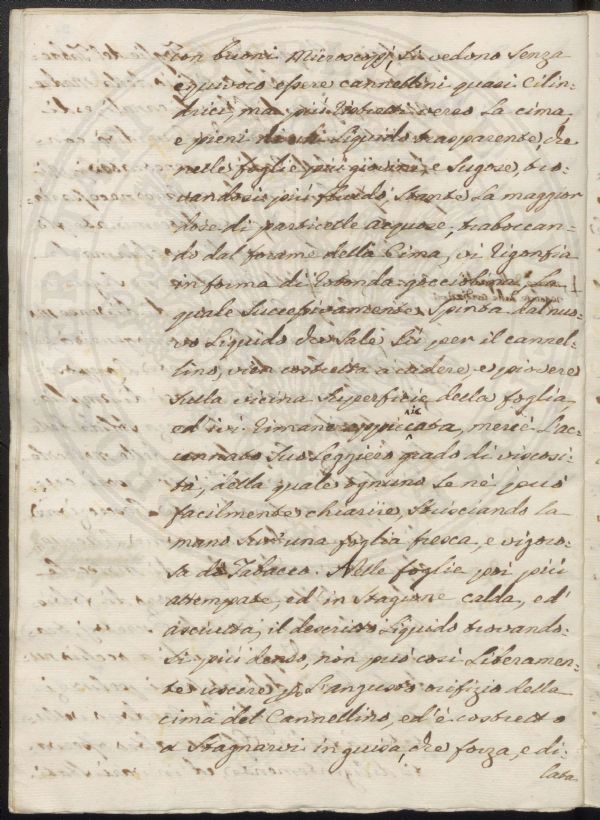 con buoni Microscopj, si vedono senza
equivoco essere cannellini quasi Cilin=
drici, ma più ristretti verso la cima,
e pieni di un Liquido trasparente, che
nelle foglie più giovini, e sugose, tro=
vandosi più fluido, stante la maggior
dose di particelle acquose, traboccan=
do dal forame della Cima, vi rigonfia
in forma di rotonda gocciolina, La
quale successivamente spinta dal nuo=
vo Liquido che sale su per il cannel=
lino, vien costretta a cadere, e piovere
sulla vicina superficie della foglia
ed ivi rimane appiccicata, mercè l'ac=
cennato suo leggiero grado di viscosi=
tà, della quale ognuno se nè può
facilmente chiarire, strisciando la
mano sur una foglia fresca, e vigoro=
sa di Tabacco. Nelle foglie poi più
attempate, ed in Stagione calda, ed
asciutta, il descritto Liquido trovando=
si più denso, non può così liberamen=
te uscire p. l'angusto orifizio della
cima del Cannellino, ed è costretto
a Stagnarvi in guisa, che forza, e di=
lata